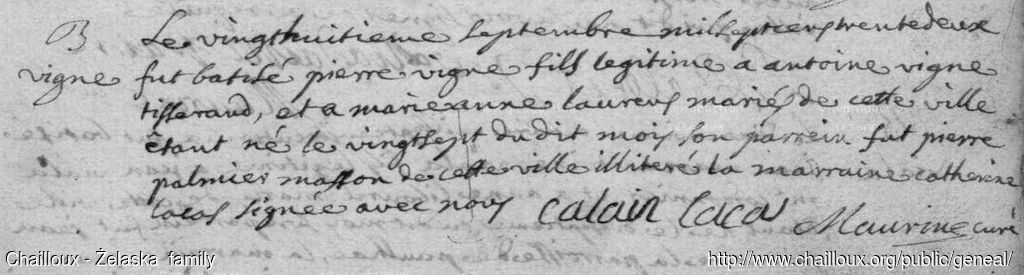 B Le vingthuitieme septembre mil sept cens trente deux
vigne fut batisé pierre vigne fils legitime a antoine vigne
tisserand, et a marie anne laurens mariés de cette ville
êtant né le vingtsept du dit mois son parrein fut pierre
palmier masson de cette ville illiteré la marraine catherine
lacas signée avec nous catain laca Maurine curé
Chailloux - Żelaska family http://www.chailloux.org/public/geneal/